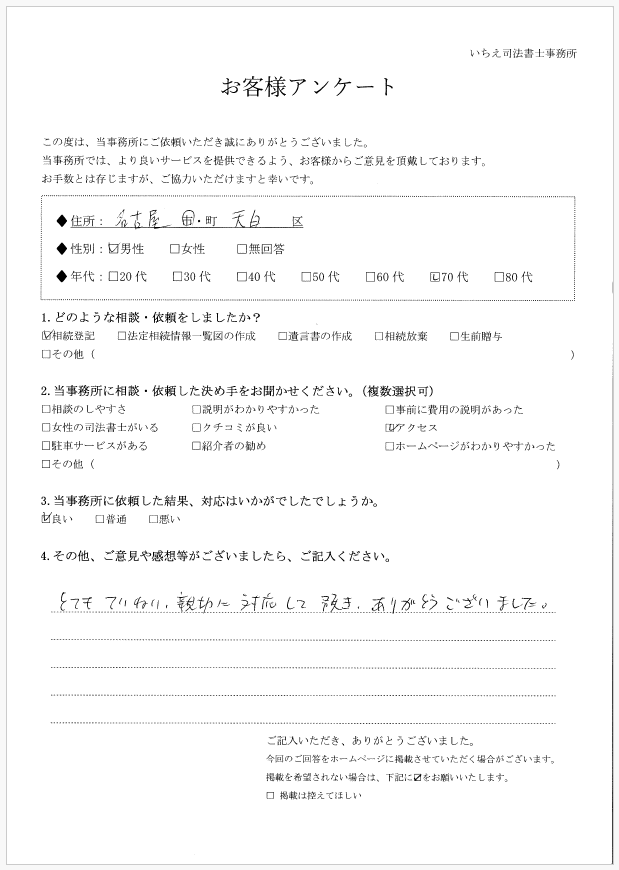 いちえ司法書士事務所
お客様アンケート
この度は、当事務所にご依頼いただき誠にありがとうございました。
当事務所では、より良いサービスを提供できるよう、お客様からご意見を頂戴しております。
お手数とは存じますが、ご協力いただけますと幸いです。
◆住所：名古屋 市・町 天白 区
◆性別：☑男性 □女性 □無回答
◆年代：□20代 □30代 □40代 □50代 □60代 ☑70代 □80代
1.どのような相談・依頼をしましたか？
☑相続登記 □法定相続情報一覧図の作成 □遺言書の作成 □相続放棄 □生前贈与
□その他（ ）
2.当事務所に相談・依頼した決め手をお聞かせください。（複数選択可）
□相談のしやすさ □説明がわかりやすかった □事前に費用の説明があった
□女性の司法書士がいる □クチコミが良い ☑アクセス
□駐車サービスがある □紹介者の勧め □ホームページがわかりやすかった
□その他（ ）
3.当事務所に依頼した結果、対応はいかがでしたでしょうか。
☑良い □普通 □悪い
4.その他、ご意見や感想等がございましたら、ご記入ください。
とても ていねい、親切に 対応して 頂き、ありがとうございました。
ご記入いただき、ありがとうございました。
今回のご回答をホームページに掲載させていただく場合がございます。
掲載を希望されない場合は、下記に☑をお願いいたします。
□ 掲載は控えてほしい